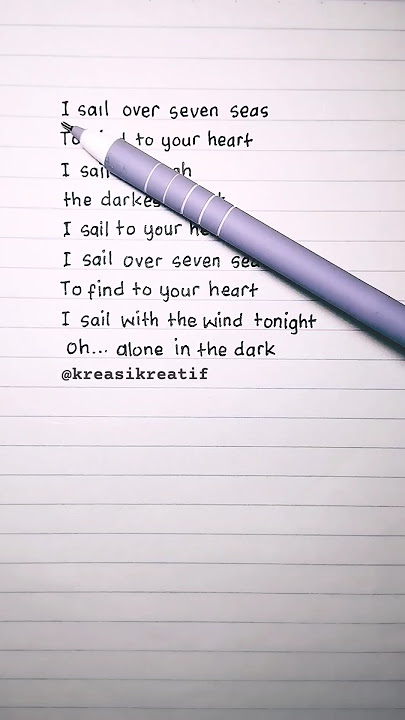 I sail over seven seas
To to your heart
I
the
I sail to your
I sail over seven
To find to your heart
I sail with the wind tonight
Oh... alone in the dark
@kreasikreatif